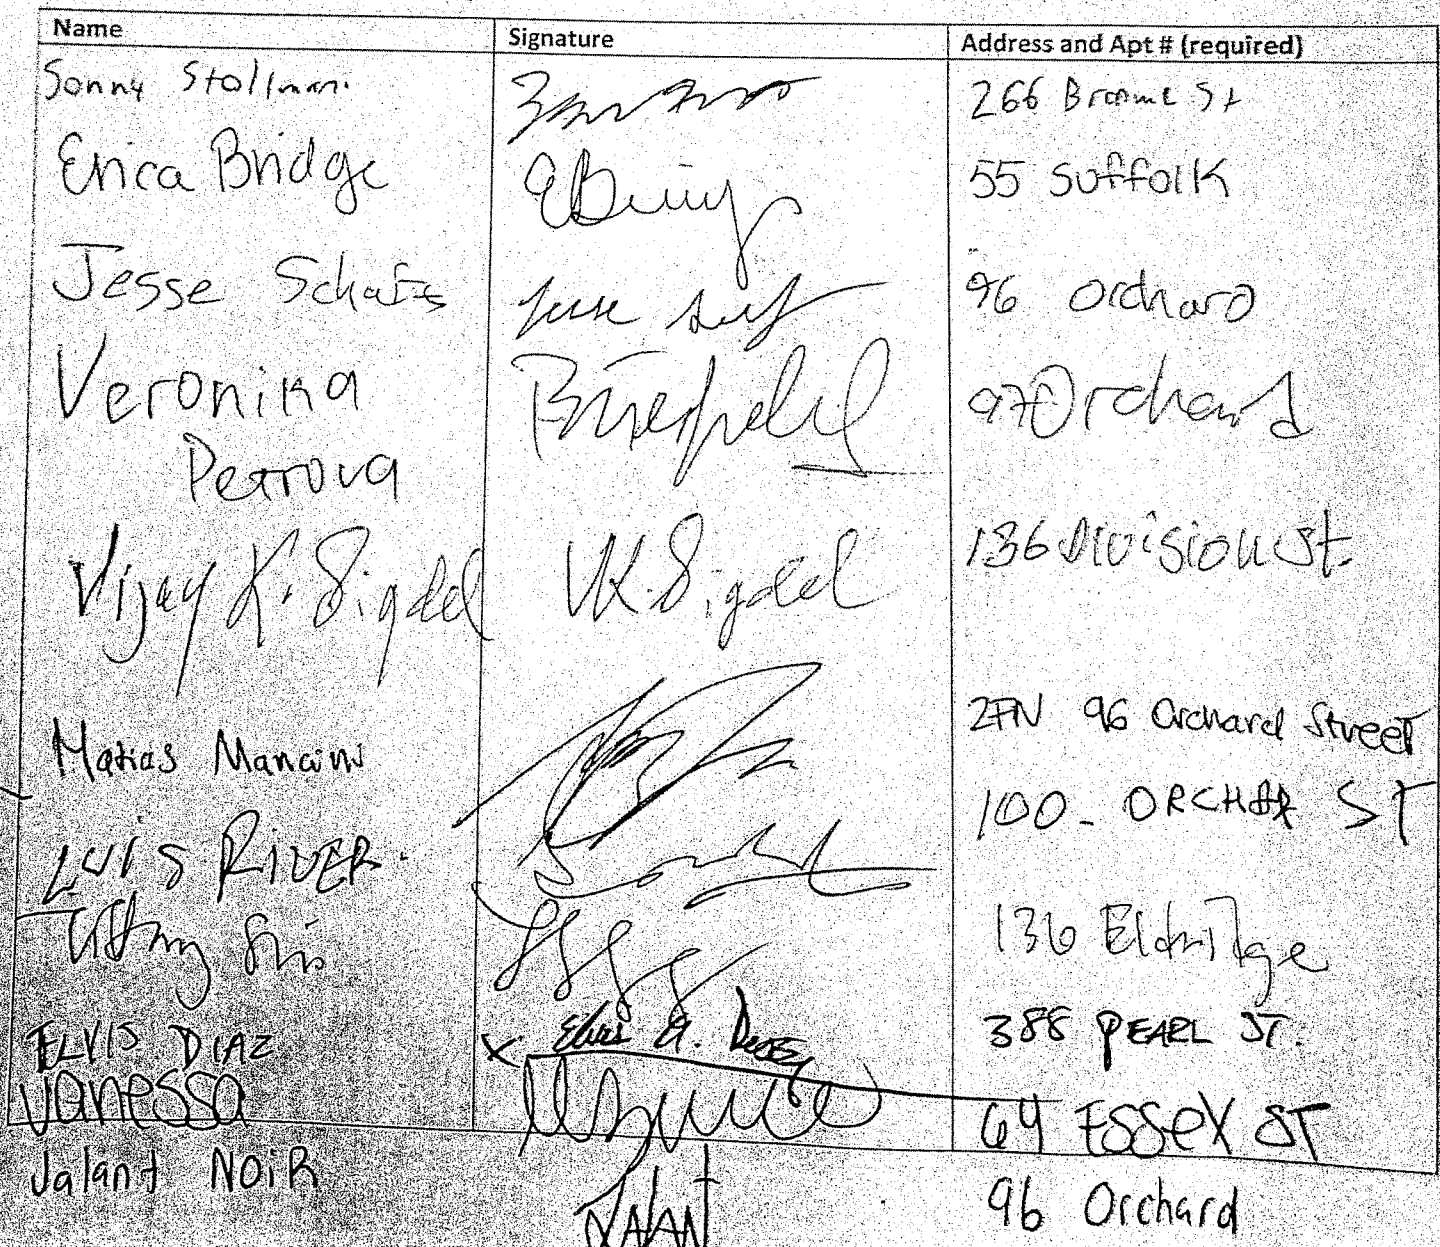 Name Signature Address and Apt # (required)
Sonny Stollman. 266 Broome St
Erica Bridge 55 Suffolk
Jesse 96 Orchard
Veronika 97 Orchard
Petrova
Vijay K. Sigdel VK. Sigdel 136 Division St.
Matias Mancini 2FN 96 Orchard Street
LUIS RIVER. 100 - ORCHAR ST
136 Eldridge
ELVIS DIAZ X 388 PEARL ST.
Vanessa 64 ESSEX ST
Jalant NOIR JALANT 96 Orchard